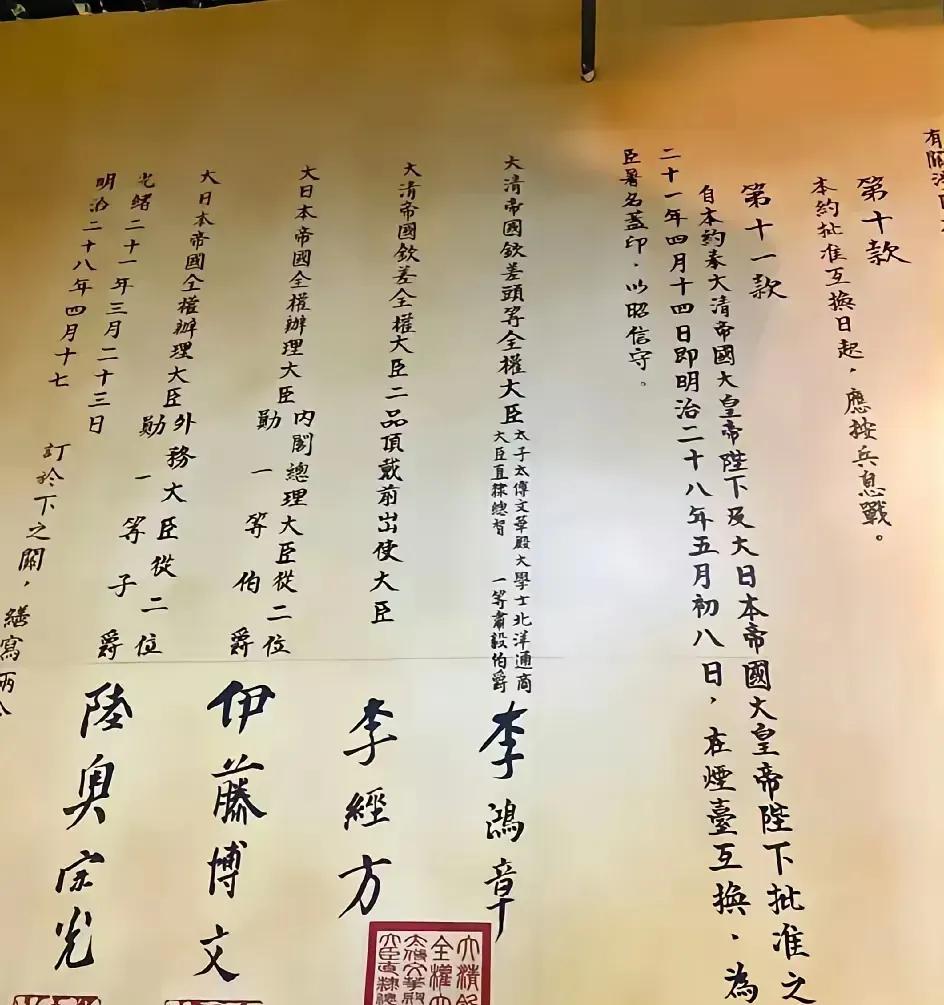 有關
第十款
本約批准互換日起，應按兵息戰。
第十一款
自本約奉大清帝國大皇帝陛下及大日本帝國大皇帝陛下批准之
二十一年四月十四日即明治二十八年五月初八日，在煙臺互換．為
臣署名蓋印．以昭信守。
大清帝國欽差頭等全權大臣
太子太傅文華殿大學士北洋通商
大臣直隸總督 一等肅毅伯爵
李鴻章
大清帝國欽差全權大臣二品頂戴前出使大臣
李經方
大日本帝國全權辦理大臣
內閣總理大臣從二位
勛一等伯爵
伊藤博文
大日本帝國全權辦理大臣
外務大臣從二位
勛一等子爵
陸奥宗光
光緒二十一年三月二十三日
明治二十八年四月十七
訂於下之關，繕寫兩
大清
全權大
太傅文華殿
大臣直隸總